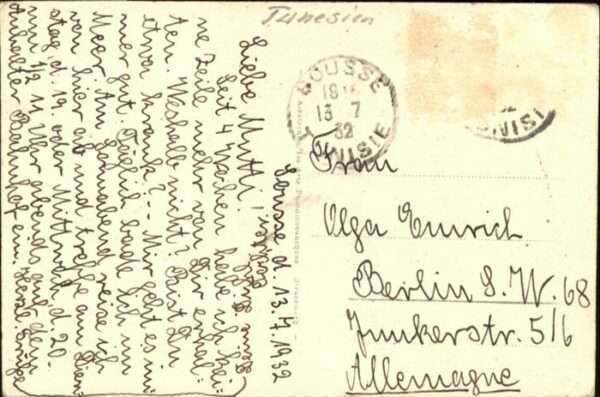 Tunesien
SOUSSE
13 7
32
TUNISIE
Frau
Olga Emrich
Berlin S.W. 68
Junkerstr. 5/6
Allemagne
Sousse d. 13.7.1932
Liebe Mutti!
Seit 4 Wochen habe ich kei-
ne Zeile mehr von Dir erhal-
ten. Weshalb nicht? Bist Du
etwa krank? – Mir geht es im-
mer gut. Täglich bade ich im
Meer. Am Sonnabend reise ich
von hier ab und treffe am Diens-
tag, d. 19. oder Mittwoch d. 20.
um 1/2 11 Uhr abends auf dem
Anhalter Bahnhof ein. Herzl. Grüße